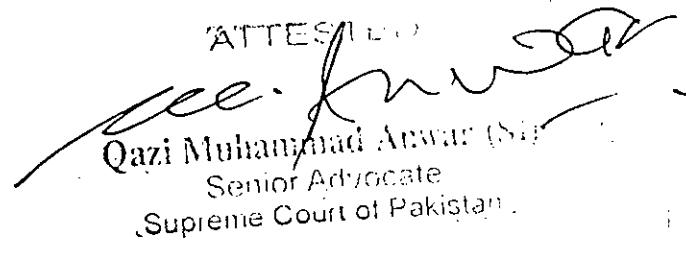 ATTESTED
Qazi Muhammad Anwar (SI)
Senior Advocate
Supreme Court of Pakistan